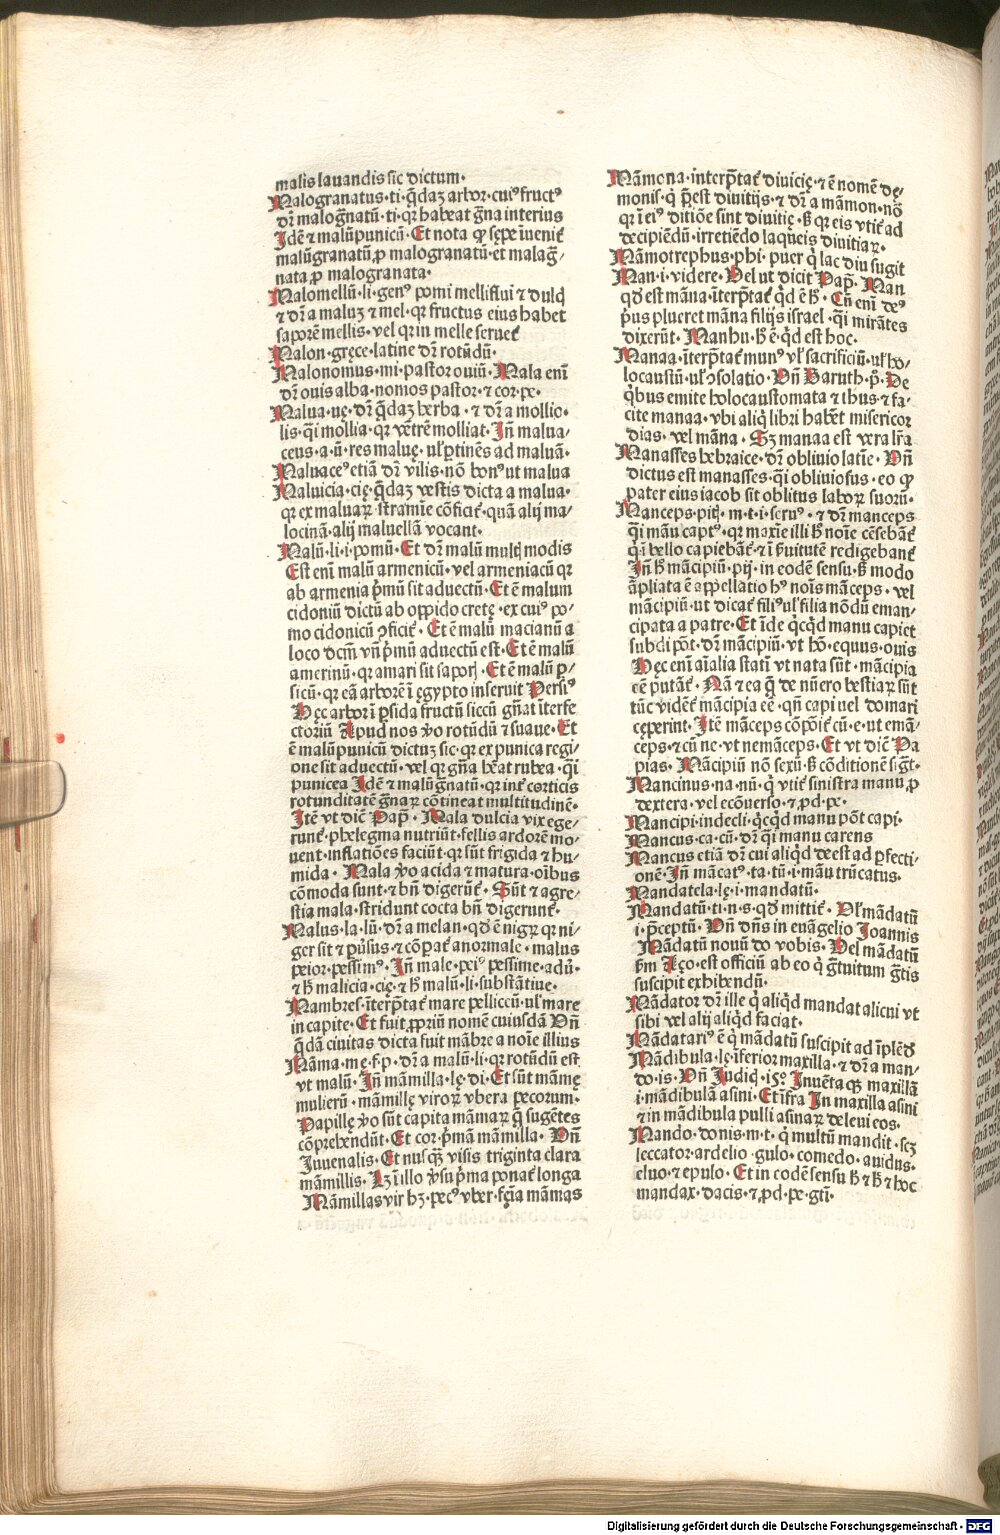 malis lauandis sic dictum·
Malogranatus·ti·q̄daꝫ arbor·cuiꝰ fructꝰ
dr̄ malogn̄atū·ti·qꝛ habeat gn̄a interius
Idē ⁊ malū punicū· Et nota ꝙ sępe īuenit᷑
malūgranatū ꝓ malogranatū·et malag̅/
nata ꝓ malogranata·
Malomellū·li·genꝰ pomi melliflui ⁊ dulcꝭ
⁊ dr̄ a maluꝫ ⁊ mel·qꝛ fructus eius habet
saporē mellis·vel qꝛ in melle seruet᷑
Malon·gręce·latine dr̄ rotūdū·
Malonomus·mi·pastor ouiū· Mala eni
dr̄ ouis alba·nomos pastor·⁊ cor·pe·
Malua·uę·dr̄ q̄daꝫ herba·⁊ dr̄ a mollio·
lis·q̄i mollia·qꝛ vētrē molliat· Jn̄ malua/
ceus·a·ū·res maluę·uł ptinēs ad maluā·
Maluaceꝰ etiā dr̄ vilis·nō bonꝰ ut malua
Maluicia·cię·q̄daꝫ vestis dicta a malua·
qꝛ ex maluaꝝ stramīe cōficit᷑·quā alij ma/
locinā·alij maluellā vocant·
Malū·li·i·pomū· Et dr̄ malū multꝭ modis
Est eni malū armenicū·vel armeniacū qꝛ
ab armenia p̄mū sit aduectū·Et ē malum
cidoniū dictū ab oppido cretę·ex cuiꝰ po/
mo cidonicū ꝯficit᷑· Et ē malū macianū a
loco dcm̄ vn̄ p̄mū aduectū est·Et ē malū
amerinū·qꝛ amari sit saporꝭ·Et ē malū p̲/
sicū·qꝛ eā arborē ī ęgypto inseruit Persiꝰ
Hęc arbor ī psida fructū siccū gn̄at īterfe
ctoriū Apud nos v̊o rotūdū ⁊ suaue·Et
ē malū punicū dictuꝫ sic·qꝛ ex punica regi/
one sit aduectū·vel qꝛ gn̄a hēat rubea·q̄i
punicea Idē ⁊ malūgn̄atū·qꝛ int᷑ corticis
rotunditatē gn̄aꝝ cōtineat multitudinē·
Itē vt diē Pap̄· Mala dulcia vix ege/
runt᷑·phlegma nutriūt·fellis ardorē mo/
uent·inflatiōes faciūt·qꝛ sūt frigida ⁊ hu/
mida· Mala v̊o acida ⁊ matura·oībus
cōmoda sunt·⁊ bn̄ digerūt᷑· Sūt ⁊ agre/
stia mala·stridunt cocta bn̄ digerunt᷑·
Malus·la·lū·dr̄ a melan·qd̄ ē nigꝝ qꝛ ni/
ger sit ⁊ pūsus·⁊ cōpat᷑ anormale·malus
peior·pessimꝰ· Jn̄ male·peiꝰ pessime·adū·
⁊ h̄ malicia·cię·⁊ h̄ malū·li·substātiue·
Mambres·īterp̄tat᷑ mare pelliccū·uł mare
in capite·Et fuit ꝓpriū nomē cuiusdā Un̄
q̄dā ciuitas dicta fuit mābre a noīe illius
Māma·mę·f·p·dr̄ a malū·li·qꝛ rotūdū est
vt malū· Jn̄ māmilla·lę·di·Et sūt māmę
mulierū·māmillę viroꝝ vbera pecorum·
Papillę v̊o sūt capita māmaꝝ q̄ sugētes
cōprehendūt·Et cor·p̄mā māmilla· Un̄
Juuenalis·Et nusq̄ visis triginta clara
māmillis·Lꝫ ī illo v̊su p̄ma ponat᷑ longa
Māmillas vir hꝫ·pecꝰ vber·fęīa māmas
Māmona·interp̄tat᷑ diuicię·⁊ ē nomē dę/
monis·q̇ p̄est diuitijs·⁊ dr̄ a māmon·nō
qꝛ ī eiꝰ ditiōe sint diuitię·ß qꝛ eis vtit᷑ ad
decipiēdū·irretiēdo laqueis diuitiaꝝ·
Māmotrephus·phi·puer q̇ lac diu sugit
Man·i·videre·Uel ut dicit Pap̄· Man
qd̄ est māna·īterp̄tat᷑ qd̄ ē h̄· Cū enī deꝰ
p̄us plueret māna filijs israel·q̄i mirātes
dixerūt· Manhu·h̄ ē·qd̄ est hoc·
Manaa·īterp̄tat᷑ munꝰ vł sacrificiū·uł ho/
locaustū·uł ꝯsolatio·Un̄ Baruth·p̄·De
q̇bus emite holocaustomata ⁊ thus·⁊ fa/
cite manaa·vbi aliq̇ libri habēt misericor
dias·vel māna· Sꝫ manaa est vera lr̄a
Manasses hebraice·dr̄ obliuio latie· Un̄
dictus est manasses·q̄i obliuiosus·eo ꝙ
pater eius iacob sit oblitus laboꝝ suoꝝ·
Manceps·pitꝭ·m·t·i·seruꝰ·⁊ dr̄ manceps
q̄i manu captꝰ·qꝛ maxīe illi h̄ noīe cēsebāt᷑
q̇ ī bello capiebāt᷑·⁊ ī ẜuitutē redigebant᷑
Jn̄ h̄ mācipiū·pij·in eodē sensu·ß modo
āpliata ē appellatio hꝰ noīs māceps·vel
mācipiū·ut dicat᷑ filiꝰ uł filia nōdū eman/
cipata a patre·Et īde q̇cqd̄ manu capiet
subdi pōt·dr̄ mācipiū·vt hō·equus·ouis
Hęc enī aīalia statī vt nata sūt·mācipia
eē putāt᷑· Nā ⁊ ea q̄ de nūero bestiaꝝ sūt
tūc vidēt᷑ mācipia eē·qn̄ capi uel domari
cęperint·Itē māceps cōpōit᷑ cū·e·ut emā/
ceps·⁊ cū ne·vt nemāceps·Et vt diē Pa
pias· Mācipiū nō sexū·ß cōditionē sigt·
Mancinus·na·nū·q̇ vtit᷑ sinistra manu ꝓ
dextera·vel ecōuerso·⁊ ꝓd·pe·
Mancipi·indecli·q̇cqd̄ manu pōt capi·
Mancus·ca·cū·dr̄ q̄i manu carens
Mancus etiā dr̄ cui aliqd̄ deest ad p̲fecti/
onē·Jn̄ mācatꝰ·ta·tū·i·māu trūcatus·
Mandatela·lę·i·mandatū·
Mandatū·ti·n·s·qd̄ mittit᷑· Uł mādatū
i·p̄ceptū· Un̄ dn̄s in euāgelio Joannis
Mādatū nouū do vobis·Uel mādatū
ẜm Aço·est officiū ab eo q̇ gr̄tuitum gr̄tis
suscipit exhibendū·
Mādator dr̄ ille q̇ aliqd̄ mandat alicui vt
sibi vel alij aliqd̄ faciat·
Mādatariꝰ ē q̇ mādatū suscipit ad īplēdū
Mādibula·lę·īferior maxilla·⁊ dr̄ a man/
do·is·Un̄ Judiq̇·15° Inuēta qꝫ maxillā
i·mādibulā asini·Et īfra In maxilla asini
⁊ in mādibula pulli asinaꝝ deleui eos·
Mando·donis·m·t·q̇ multū mandit·scꝫ
leccator·ardelio·gulo·comedo·auidus·
eluo·⁊ epulo· Et in eodē sensu h̄ ⁊ h̄ ⁊ hoc
mandax·dacis·⁊ ꝓd·pe·gtī·
Digitalisierung gefördert durch die Deutsche Forschungsgemeinschaft - DFG